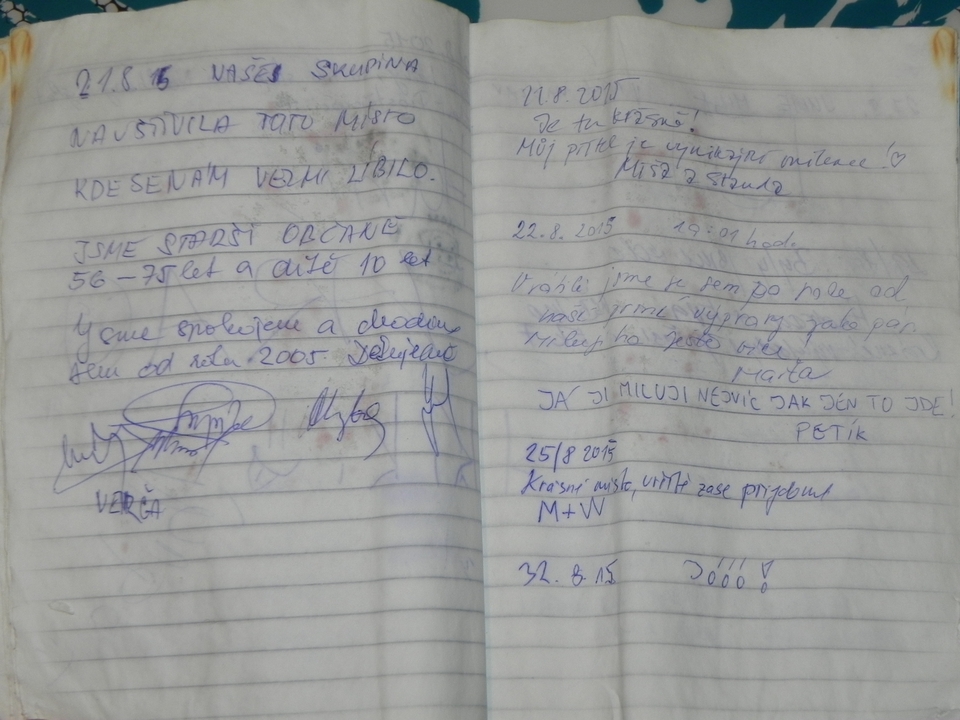 21.8.15 NAŠE SKUPINA
NAVŠTÍVILA TOTO MÍSTO
KDE SE NÁM VELMI LÍBILO.
JSME STARŠÍ OBČANÉ
56 – 75 let a dítě 10 let
Jsme spokojeni a chodíme
sem od roku 2005. Děkujeme
VERČA
21.8.2015
Je tu krásně!
Můj přítel je vynikající milenec!♡
Míša a Standa
22.8.2015 19:01 hod.
Vrátili jsme se sem po roce od
naší první výpravy jako pár
Miluji ho ještě více.
Marťa
JÁ JI MILUJI NEJVÍC JAK JEN TO JDE!
PETÍK
25/8 2015
Krásné místo, určitě zase přijedeme
M+W
32.8.15 JÓÓÓ!